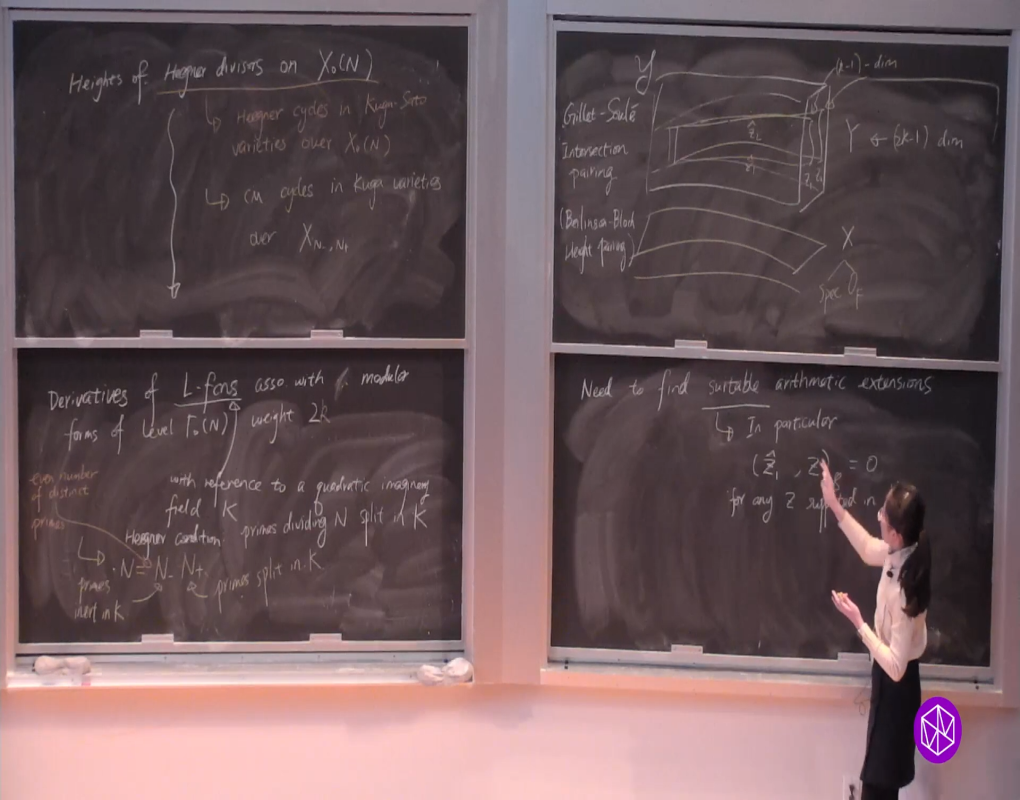 Heights of Heegner divisors on X₀(N)
↳ Heegner cycles in Kuga-Sato
varieties over X₀(N)
↳ CM cycles in Kuga varieties
over X_{N₋,N₊}
Derivatives of L-fcns asso with modular
forms of level Γ₀(N) weight 2k
even number
of distinct
primes
with reference to a quadratic imaginary
field K
Heegner condition: primes dividing N split in K
↳ N = N₋ N₊ primes split in K
primes
inert in K
Y (k-1)-dim
Gillet-Soulé
Intersection
pairing
(Beilinson-Bloch
Height pairing)
Ẑ₂
Ẑ₁
Z₂ Z₁
Y ← (2k-1) dim
X
Spec F
Need to find suitable arithmetic extensions
↳ In particular
(Ẑ₁, Z) = 0
for any Z in